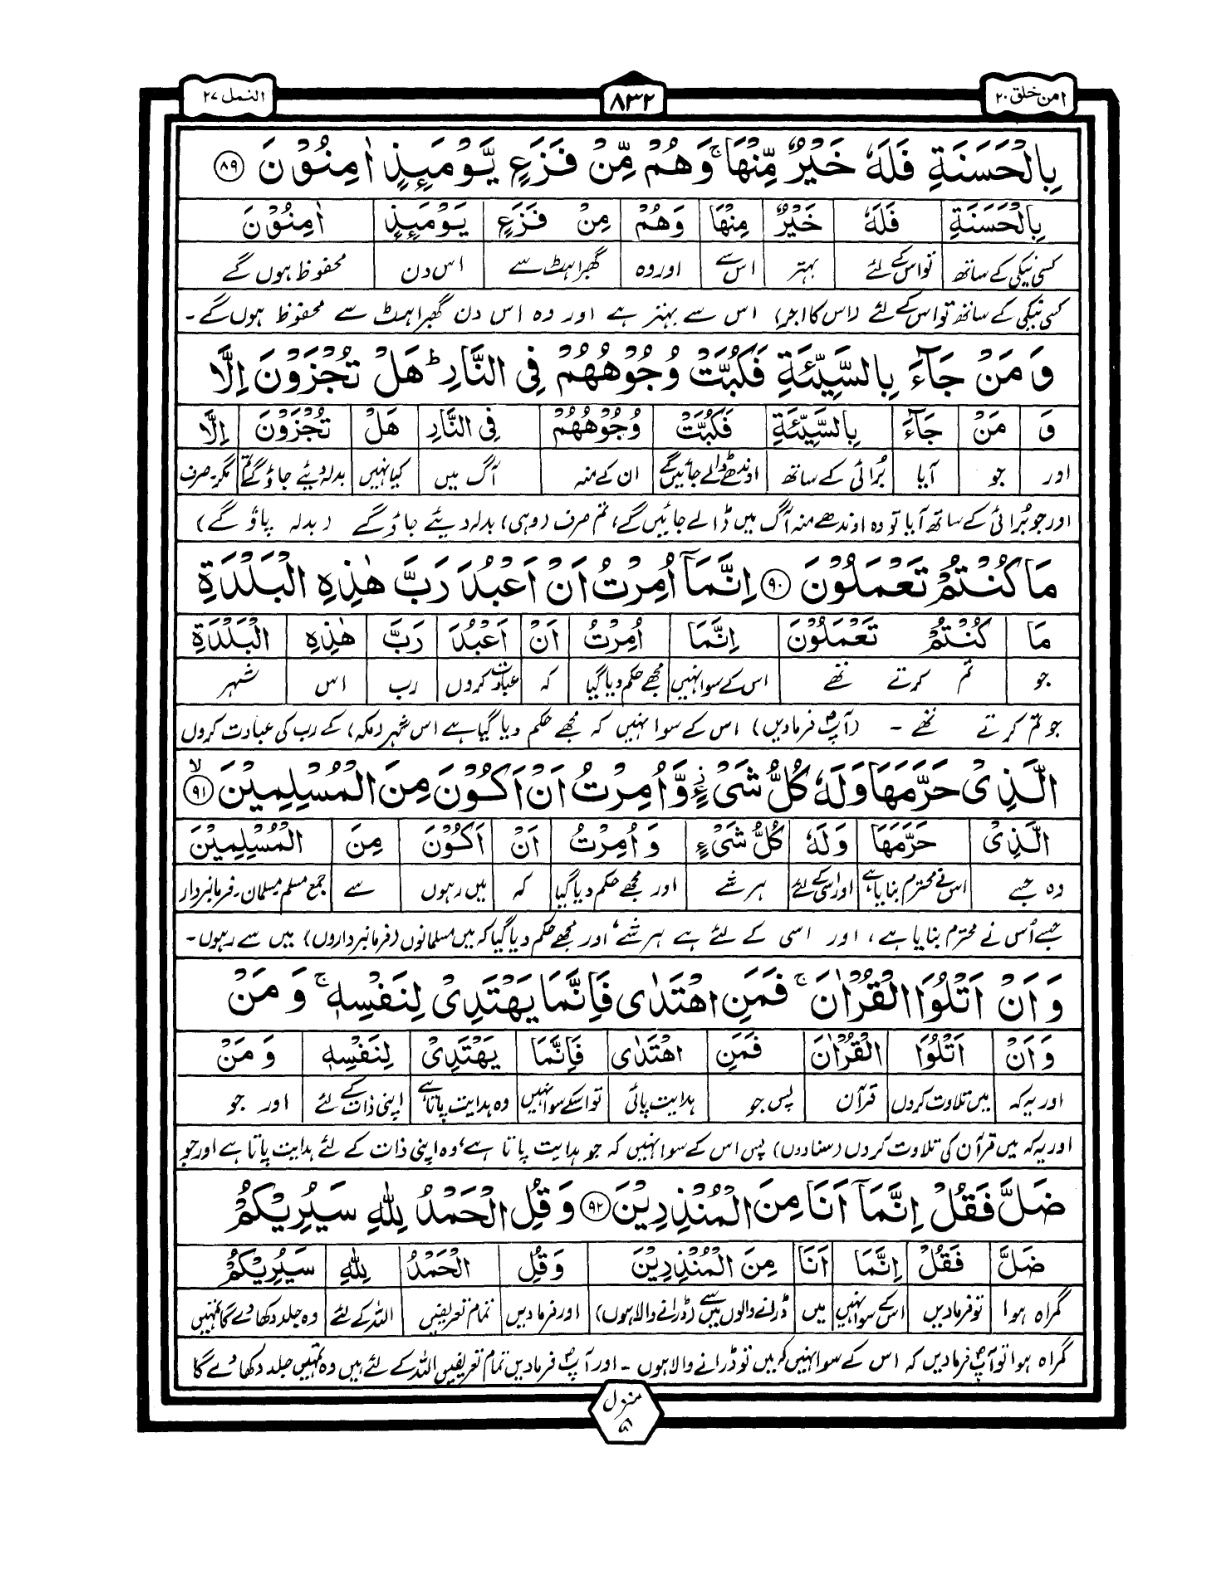 امن خلق ۲۰
۸۳۲
النمل ۲۷
بِالْحَسَنَةِ فَلَهٗ خَيْرٌ مِّنْهَا ۚ وَهُمْ مِّنْ فَزَعٍ يَّوْمَىِٕذٍ اٰمِنُوْنَ ﴿۸۹﴾
بِالْحَسَنَةِ فَلَهٗ خَيْرٌ مِنْهَا وَهُمْ مِنْ فَزَعٍ يَوْمَىِٕذٍ اٰمِنُوْنَ
کسی نیکی کے ساتھ تو اس کے لئے بہتر اس سے اور وہ گھبراہٹ سے اس دن محفوظ ہوں گے
کسی نیکی کے ساتھ تو اس کے لئے (اس کا اجر) اس سے بہتر ہے اور وہ اس دن گھبراہٹ سے محفوظ ہوں گے ۔
وَ مَنْ جَآءَ بِالسَّيِّئَةِ فَكُبَّتْ وُجُوْهُهُمْ فِى النَّارِ ؕ هَلْ تُجْزَوْنَ اِلَّا
وَ مَنْ جَآءَ بِالسَّيِّئَةِ فَكُبَّتْ وُجُوْهُهُمْ فِى النَّارِ هَلْ تُجْزَوْنَ اِلَّا
اور جو آیا بُرائی کے ساتھ اوندھے ڈالے جائیں گے ان کے منہ آگ میں کیا نہیں بدلہ دیئے جاؤ گے تم مگر صرف
اور جو بُرائی کے ساتھ آیا تو وہ اوندھے منہ آگ میں ڈالے جائیں گے، تم صرف (وہی) بدلہ دیئے جاؤ گے (بدلہ پاؤ گے)
مَا كُنْتُمْ تَعْمَلُوْنَ ﴿۹۰﴾ اِنَّمَآ اُمِرْتُ اَنْ اَعْبُدَ رَبَّ هٰذِهِ الْبَلْدَةِ
مَا كُنْتُمْ تَعْمَلُوْنَ اِنَّمَا اُمِرْتُ اَنْ اَعْبُدَ رَبَّ هٰذِهِ الْبَلْدَةِ
جو تم کرتے تھے اس کے سوا نہیں مجھے حکم دیا گیا کہ عبادت کروں رب اس شہر
جو تم کرتے تھے ۔ (آپؐ فرمادیں) اس کے سوا نہیں کہ مجھے حکم دیا گیا ہے اس شہر (مکہ) کے رب کی عبادت کروں
الَّذِىْ حَرَّمَهَا وَلَهٗ كُلُّ شَىْءٍ ۡ وَّاُمِرْتُ اَنْ اَكُوْنَ مِنَ الْمُسْلِمِيْنَ ۙ﴿۹۱﴾
الَّذِىْ حَرَّمَهَا وَلَهٗ كُلُّ شَىْءٍ وَ اُمِرْتُ اَنْ اَكُوْنَ مِنَ الْمُسْلِمِيْنَ
وہ جسے اس نے محترم بنایا ہے اور اسی کے لئے ہر شے اور مجھے حکم دیا گیا کہ میں رہوں سے جمع مسلم مسلمان ۔ فرمانبردار
جسے اُس نے محترم بنایا ہے، اور اسی کے لئے ہے ہر شے، اور مجھے حکم دیا گیا کہ میں مسلمانوں (فرمانبرداروں) میں سے رہوں ۔
وَ اَنْ اَتْلُوَا الْقُرْاٰنَ ۚ فَمَنِ اهْتَدٰى فَاِنَّمَا يَهْتَدِىْ لِنَفْسِهٖ ۚ وَ مَنْ
وَ اَنْ اَتْلُوَا الْقُرْاٰنَ فَمَنِ اهْتَدٰى فَاِنَّمَا يَهْتَدِىْ لِنَفْسِهٖ وَ مَنْ
اور یہ کہ میں تلاوت کروں قرآن پس جو ہدایت پائی تو اس کے سوا نہیں وہ ہدایت پاتا ہے اپنی ذات کے لئے اور جو
اور یہ کہ میں قرآن کی تلاوت کروں (سنادوں) پس اس کے سوا نہیں کہ جو ہدایت پاتا ہے، وہ اپنی ذات کے لئے ہدایت پاتا ہے اور جو
ضَلَّ فَقُلْ اِنَّمَآ اَنَا مِنَ الْمُنْذِرِيْنَ ﴿۹۲﴾ وَ قُلِ الْحَمْدُ لِلّٰهِ سَيُرِيْكُمْ
ضَلَّ فَقُلْ اِنَّمَا اَنَا مِنَ الْمُنْذِرِيْنَ وَ قُلِ الْحَمْدُ لِلّٰهِ سَيُرِيْكُمْ
گمراہ ہوا تو فرمادیں اس کے سوا نہیں میں ڈرانے والوں میں سے (ڈرانے والا ہوں) اور فرمادیں تمام تعریفیں اللہ کے لئے وہ جلد دکھادے گا تمہیں
گمراہ ہوا تو آپؐ فرمادیں کہ اس کے سوا نہیں کہ میں تو ڈرانے والا ہوں ۔ اور آپؐ فرمادیں تمام تعریفیں اللہ کے لئے ہیں وہ تمہیں جلد دکھادے گا
منزل
۵